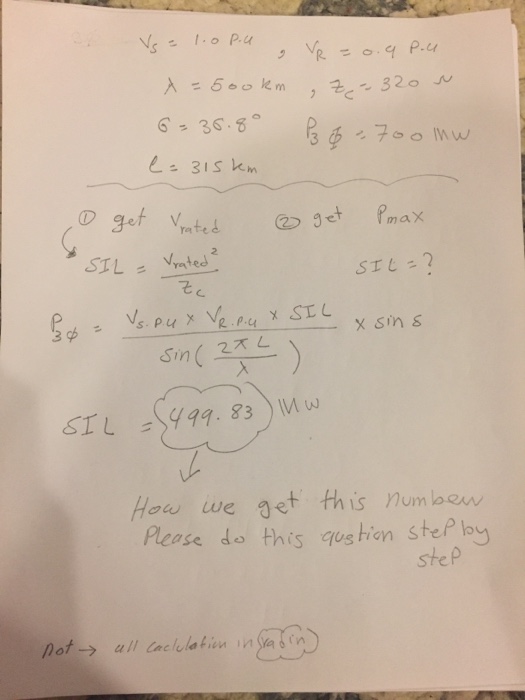 Vs = 1.0 P.u , VR = 0.9 P.u
λ = 500 km , Zc = 320 Ω
δ = 36.8° P3φ = 700 MW
l = 315 km
① get Vrated ② get Pmax
SIL = Vrated² / Zc SIL = ?
P3φ = Vs.pu x VR.p.u x SIL / sin( 2πL / λ ) x sin δ
SIL = 499.83 MW
How we get this number
Please do this qustion step by
step
not → all caclulation in